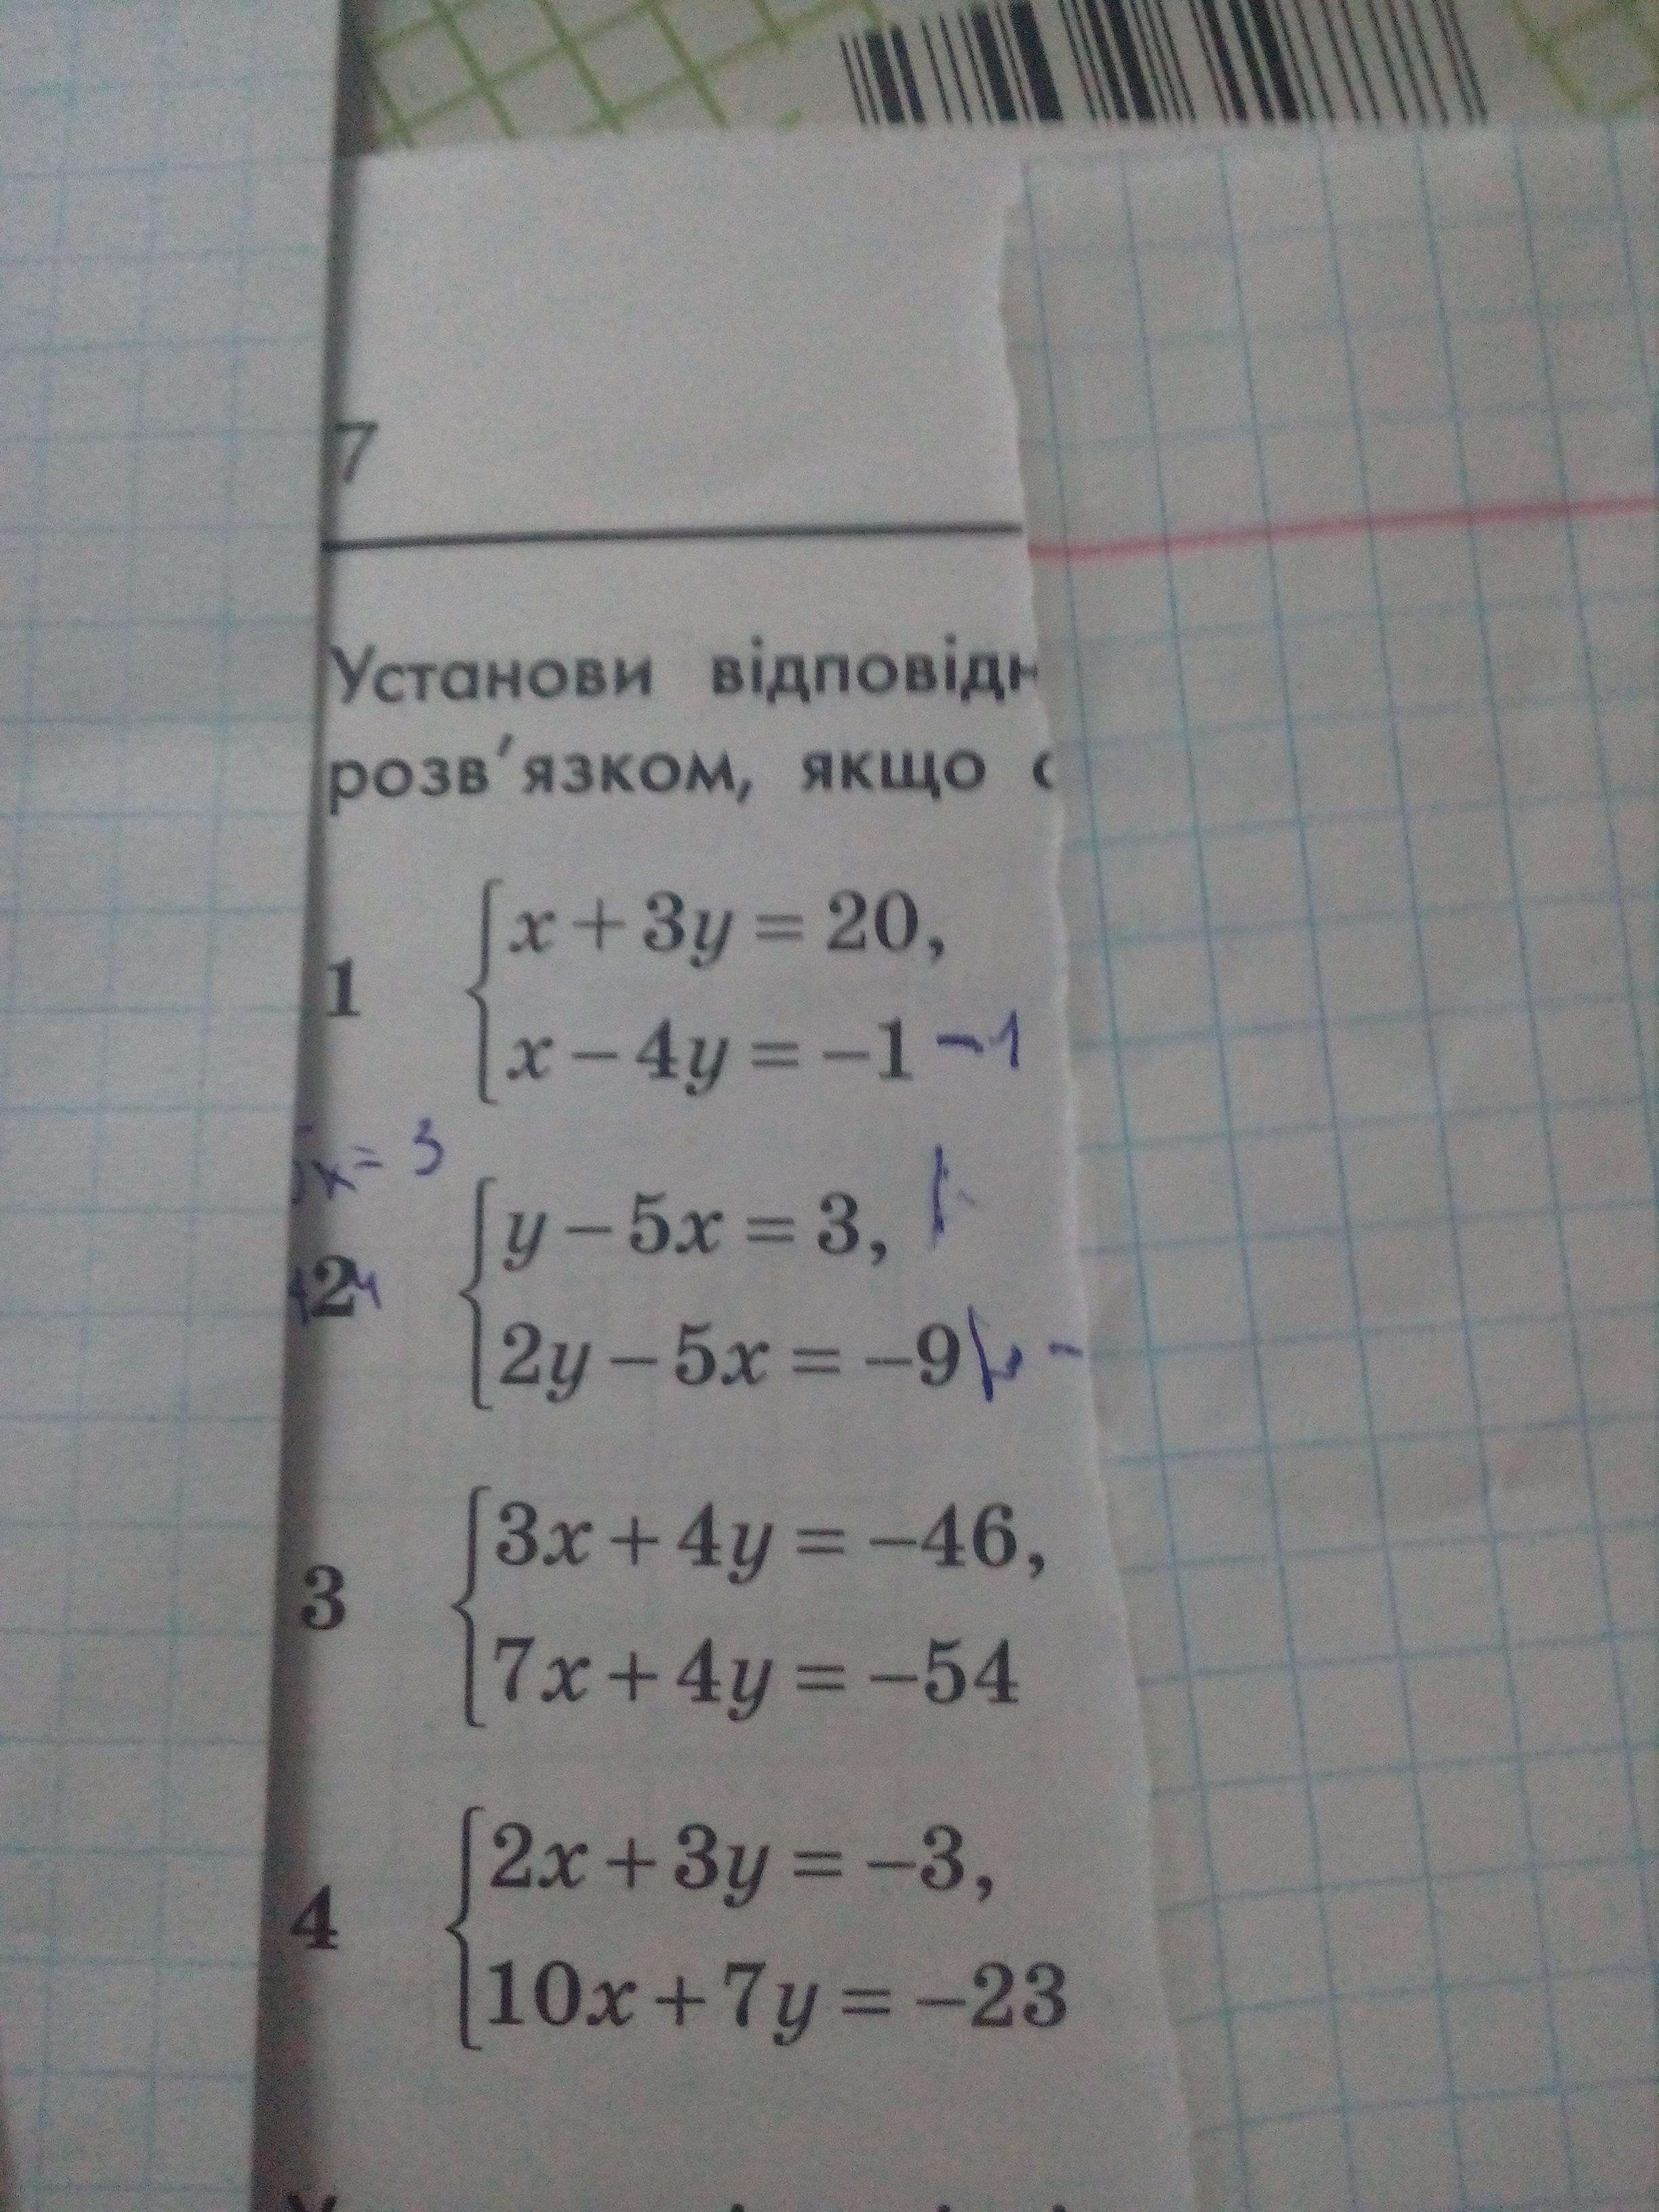 7
Установи відповідн
розв'язком, якщо
x + 3y = 20,
1
x − 4y = −1 −1
x = 3
y − 5x = 3,
2
2y − 5x = −9
3x + 4y = −46,
3
7x + 4y = −54
2x + 3y = −3,
4
10x + 7y = −23